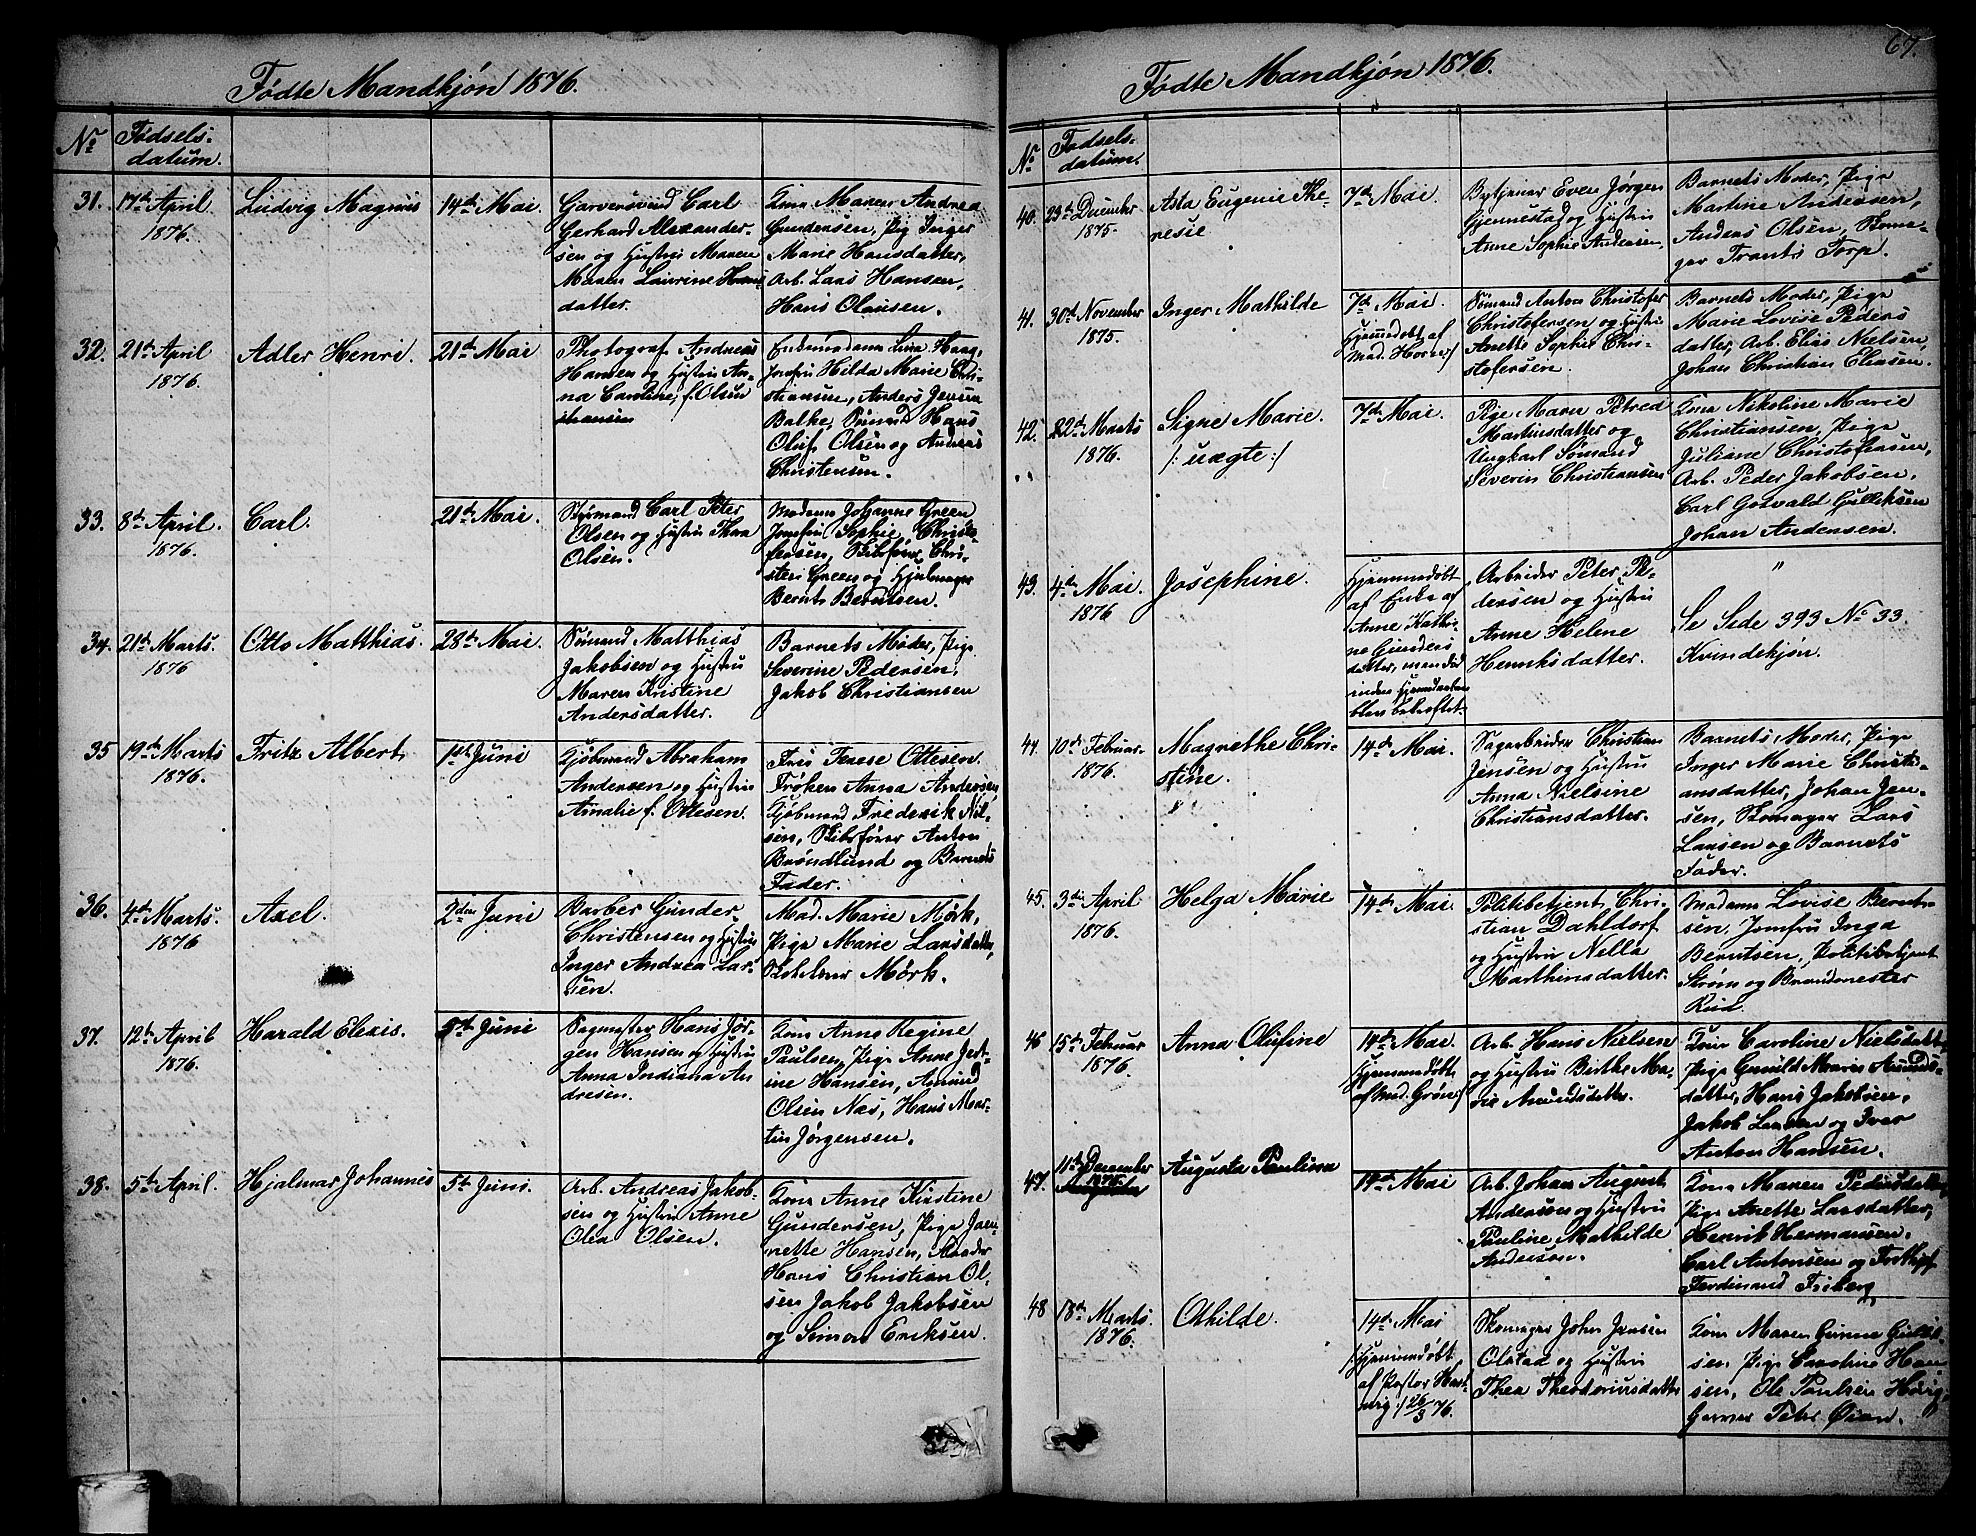 67.
Fødte Mandkjøn 1876.
No Fødsels-
datum.
31. 17de April
1876.
Ludvig Magnus
14de Mai.
Garversvend Carl
Gerhard Alexander-
sen og Hustru Maren
Maren Laurine Hans
datter.
Kone Maren Andrea
Gundersen, Pig Inger
Marie Hansdatter,
Arb. Lars Hansen,
Hans Olausen.
32. 21de April
1876.
Adler Henri.
21de Mai
Photograf Andreas
Hansen og Hustru An-
na Caroline, f. Olsen
Enkemadame Lina Haag,
Jomfru Hilda Marie Chri-
stiansen, Anders Jensen
Balke, Sømand Hans
Oluf Olsen og Andreas
Christensen.
33. 8de April.
1876.
Carl.
21de Mai.
Styrmand Carl Peter
Olsen og Hustru Thea
Olsen.
Madame Johanne Green
Jomfru Sophie Christo-
fersen, Skibsfører Chri-
sten Green og Hjulmager
Bernt Berntsen.
34. 21de Marts.
1876
Otto Matthias.
28de Mai.
Sømand Matthias
Jakobsen og Hustru
Maren Kristine
Andersdatter.
Barnets Moder, Pige
Severine Pedersen,
Jakob Christiansen
35 19de Marts
1876.
Fritz Albert
1ste Juni
Kjøbmand Abraham
Andersen og Hustru
Amalie f. Ottesen.
Fru Terese Ottesen.
Frøken Anna Andersen
Kjøbmand Frederik Nil-
sen, Skibsfører Anton
Brøndlund og Barnets
Fader.
36. 4de Marts.
1876
Axel.
2den Juni
Barber Gunder
Christensen og Hustru
Inger Andrea Lar-
sen.
Mad. Marie Mørk,
Pige Marie Larsdatter,
Mørk.
37. 12te April
1876.
Harald Elexis.
5te Juni
Sagmester Hans Jør-
gen Hansen og Hustru
Anna Indiana An
dresen.
Kone Anne Regine
Paulsen, Pige Anne Jest-
ine Hansen, Amund
Olsen Næs, Hans Mar-
tin Jørgensen.
38. 5te April.
Hjalmar Johannes
5te Juni.
Arb. Andreas Jakob-
sen og Hustru Anne
Olea Olsen.
Kone Anne Kirstine
Gundersen, Pige Jean-
nette Hansen,
Hans Christian Ol-
sen Jakob Jakobsen
og Simon Eriksen.
Fødte Mandkjøn 1876.
No Fødsels-
datum.
40. 23de December
1875.
Asta Eugenie The-
resie
7de Mai.
Bytjener Even Jørgen
Gjennestad og Hustru
Anne Sophie Andersen
Barnets Moder, Pige
Martine Andersen,
Anders Olsen, Skoma-
ger Frants Torp.
41. 30te November
1875.
Inger Mathilde
7de Mai.
Hjemmedøbt af
Mad. Horne /
Sømand Anton Christofer
Christofersen og Hustru
Anette Sophie Chri-
stofersen.
Barnets Moder, Pige
Marie Lovise Peders
datter, Arb. Elias Nielsen,
Johan Christian Eliasen.
42. 22de Marts
1876.
Signe Marie.
/: uægte :/
7de Mai.
Pige Maren Petrea
Martinsdatter og
Ungkarl Sømand
Severin Christiansen
Kone Nikoline Marie
Christiansen, Pige
Juliane Christofersen,
Arb. Peder Jakobsen.
Carl Gotvald Gulliksen
Johan Andersen.
43. 4de Mai.
1876
Josephine.
Hjemmedøbt
af Enke af
Anne Kathri-
ne Gunders
datter, men død
inden Hjemmedaaben
blev bekræftet.
Arbeider Peter Pe-
dersen og Hustru
Anne Helene
Henriksdatter.
"
Se Side 393 No 33.
Kvindekjøn.
44. 10de Februar
1876.
Magrethe Chri-
stine.
14de Mai.
Sagarbeider Christian
Jensen og Hustru
Anna Nielsine
Christiansdatter.
Barnets Moder, Pige
Inger Marie Christi-
ansdatter, Johan Jen-
sen, Skomager Lars
Larsen og Barnets
Fader.
45. 3die April
1876.
Helga Marie
14de Mai.
Politibetjent Chri-
stian Dahldorf
og Hustru Nella
Marthinsdatter.
Madame Lovise Bernt-
sen, Jomfru Inga
Berntsen, Politibetjent
Strøm og Brandmester
Rud.
46 15de Februar
1876.
Anna Olufine
14de Mai.
Hjemmedøbt
af Mad. Grøn /
Arb. Hans Nielsen
og Hustru Birthe Ma-
rie Amundsdatter.
Kone Caroline Nielsdatter
Pige Gunild Maren Amunds-
datter, Hans Jakobsen,
Jakob Larsen og Iver
Anton Hansen.
47. 11te December
1875
Augusta Paulina
14de Mai
Arb. Johan August
Anderson og Hustru
Pauline Mathilde
Anderson.
Kone Maren Pedersdatter,
Pige Anette Larsdatter,
Henrik Hermansen.
Carl Antonsen og
Ferdinand Friberg
48 18de Marts.
1876.
Othilde.
14de Mai
/: Hjemmedøbt
af Pastor
/ 26/3 76.
Skomager John Jensen
Olstad og Hustru
Thea Theodorusdatter
Kone Maren Gurina
sen, Pige Caroline Han
sen, Ole Paulsen
Garver Peter Øian.